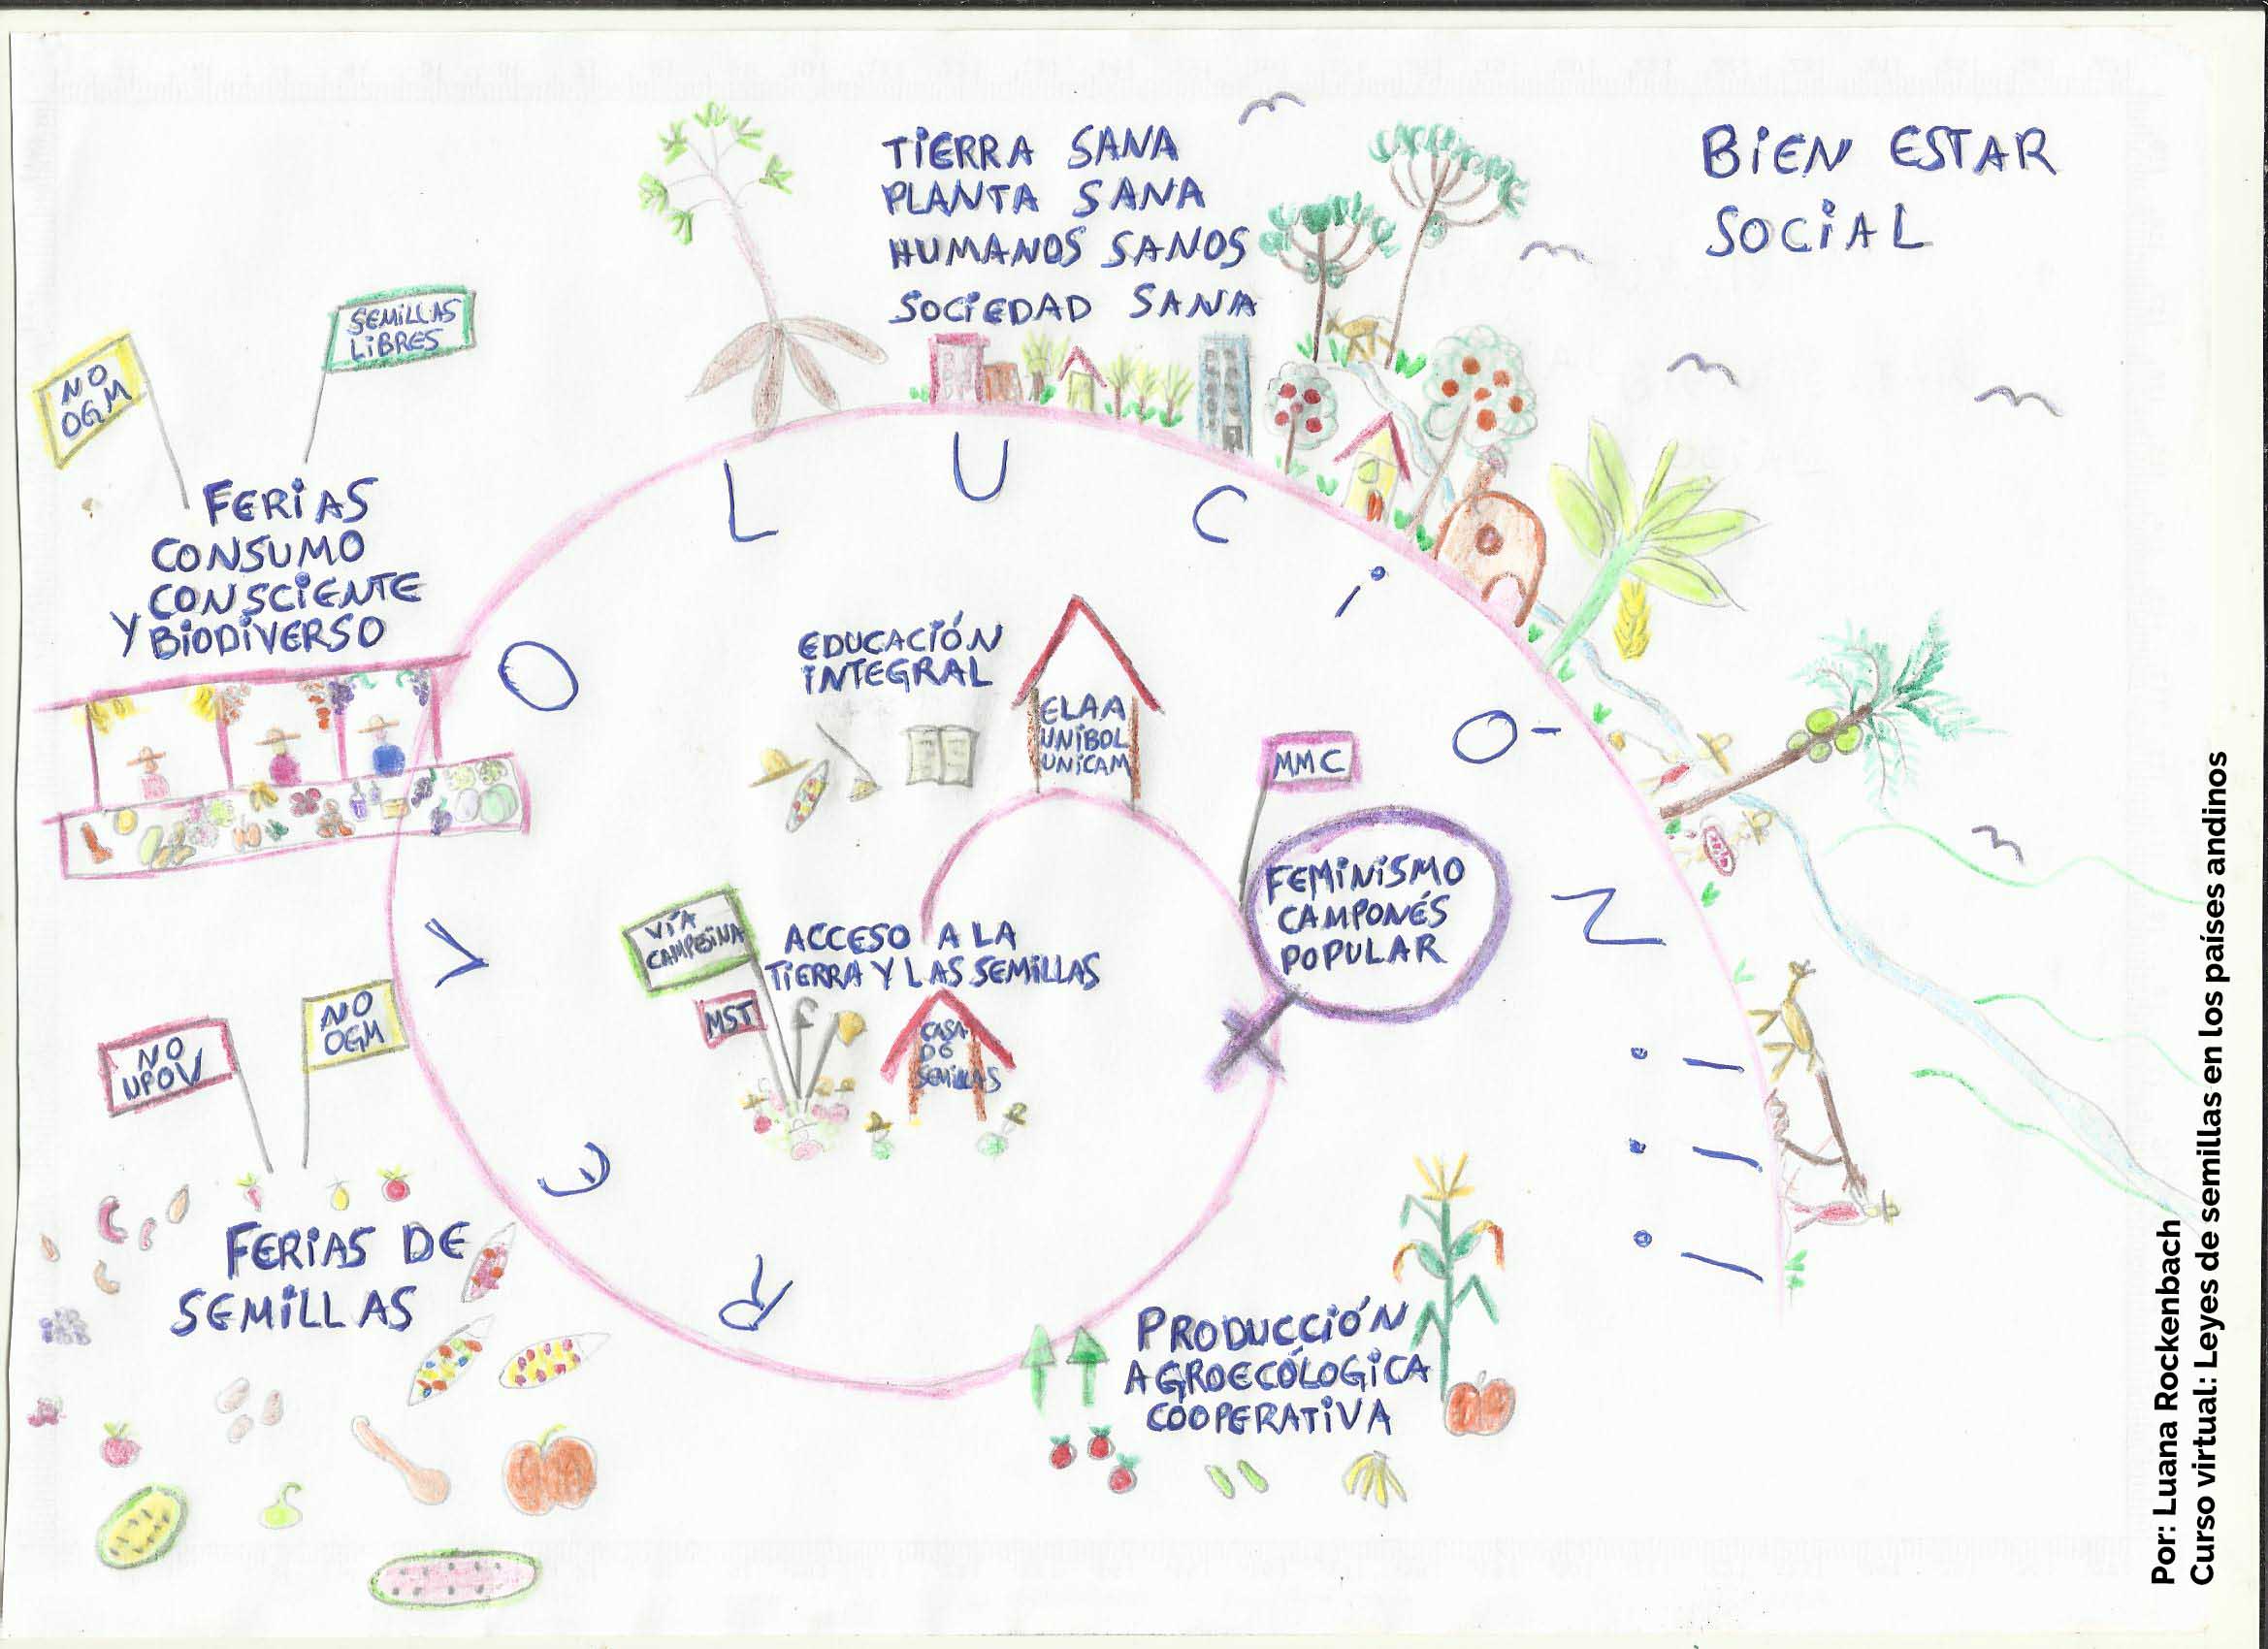 TIERRA SANA
PLANTA SANA
HUMANOS SANOS
SOCIEDAD SANA
BIEN ESTAR
SOCIAL
SEMILLAS
LIBRES
NO
OGM
FERIAS
CONSUMO
CONSCIENTE
Y BIODIVERSO
REVOLUCIÓN!!!
EDUCACIÓN
INTEGRAL
ELAA
UNIBOL
UNICAM
MMC
FEMINISMO
CAMPONÉS
POPULAR
VÍA
CAMPESINA
MST
ACCESO A LA
TIERRA Y LAS SEMILLAS
CASA
DE
SEMILLAS
NO
UPOV
NO
OGM
FERIAS DE
SEMILLAS
PRODUCCIÓN
AGROECÓLOGICA
COOPERATIVA
Por: Luana Rockenbach
Curso virtual: Leyes de semillas en los países andinos